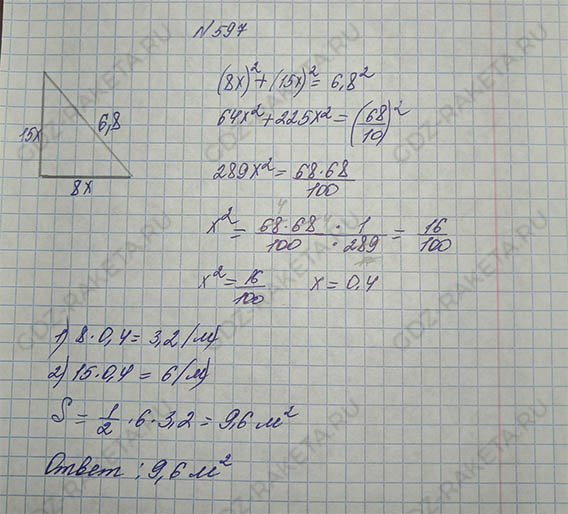 N597
(8x)² + (15x)² = 6,8²
64x² + 225x² = (68/10)²
15x
6,8
8x
289x² = 68·68/100
x² = 68·68/100 · 1/289 = 16/100
x² = 16/100 x = 0,4
1) 8·0,4 = 3,2 (м)
2) 15·0,4 = 6 (м)
S = 1/2 · 6 · 3,2 = 9,6 м²
Ответ: 9,6 м²
GDZ-RAKETA.RU